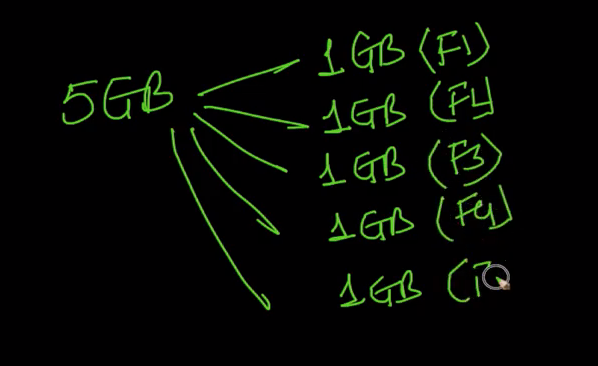 5GB
1GB (F1)
1GB
1GB (F3)
1GB (F4)
1GB